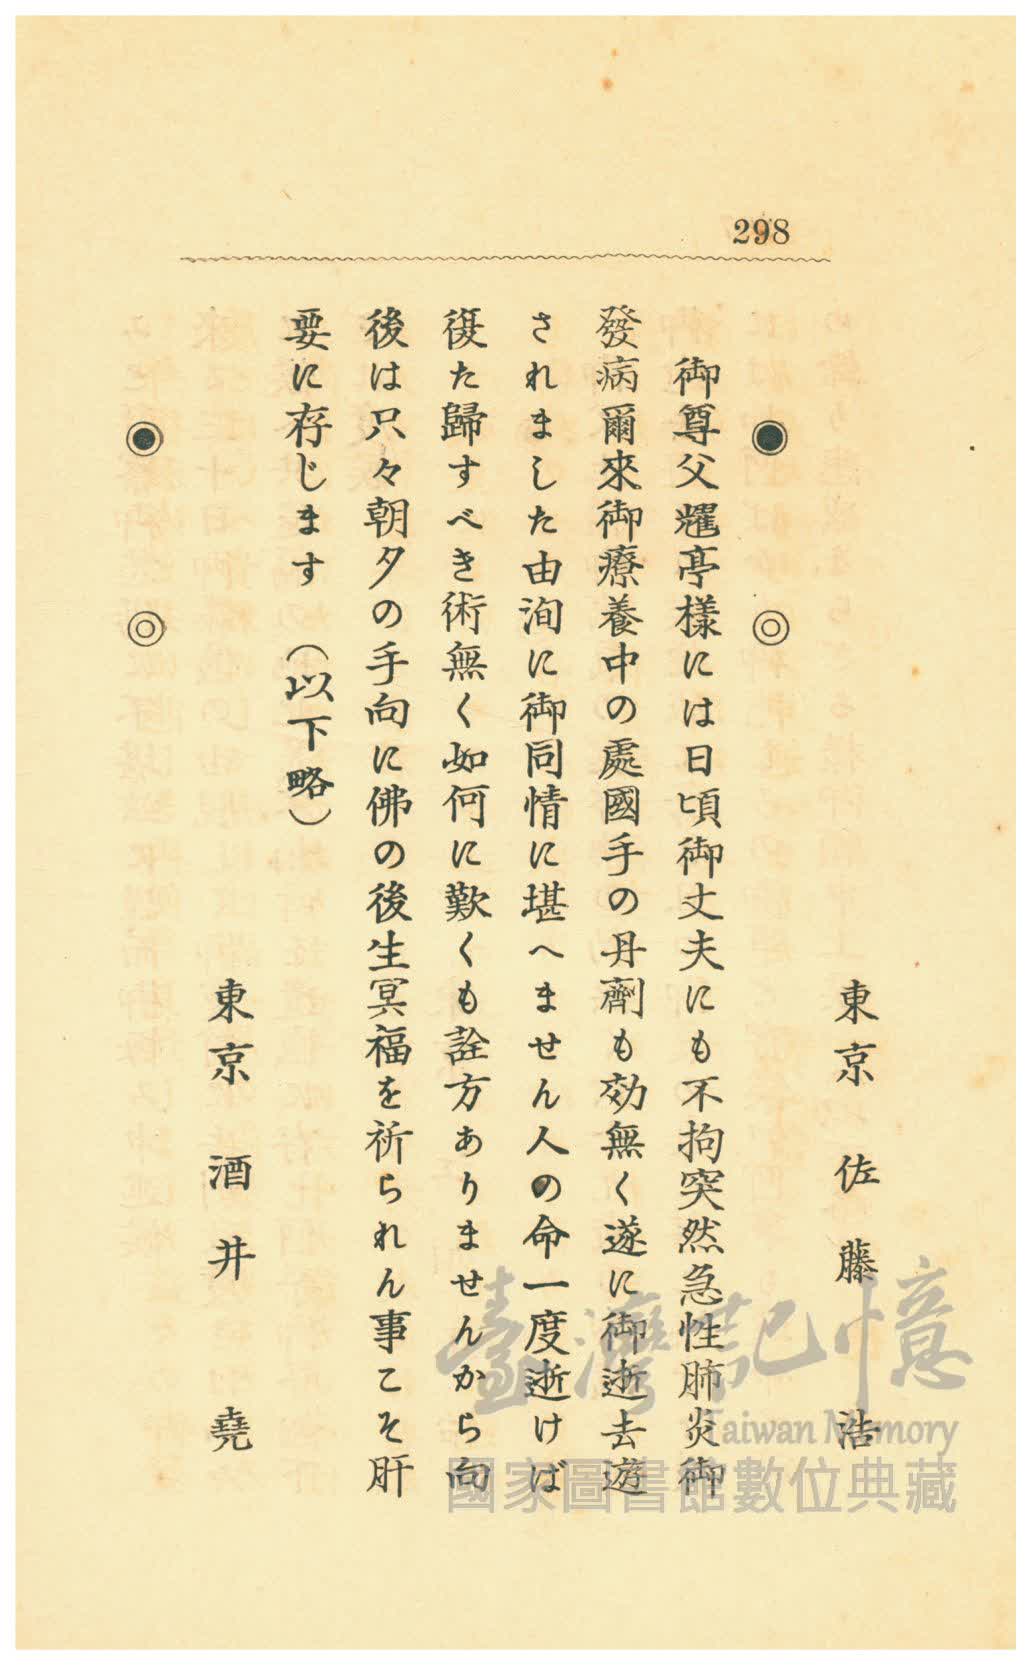 298
東京 佐藤 浩
◉ ◎
御尊父耀亭樣には日頃御丈夫にも不拘突然急性肺炎御
發病爾來御療養中の處國手の丹劑も効無く遂に御逝去遊
されました由洵に御同情に堪へません人の命一度逝けば
復た歸すべき術無く如何に歎くも詮方ありませんから向
後は只々朝夕の手向に佛の後生冥福を祈られん事こそ肝
要に存じます (以下略)
東京 酒井 堯
◉ ◎
臺灣記憶
Taiwan Memory
國家圖書館數位典藏